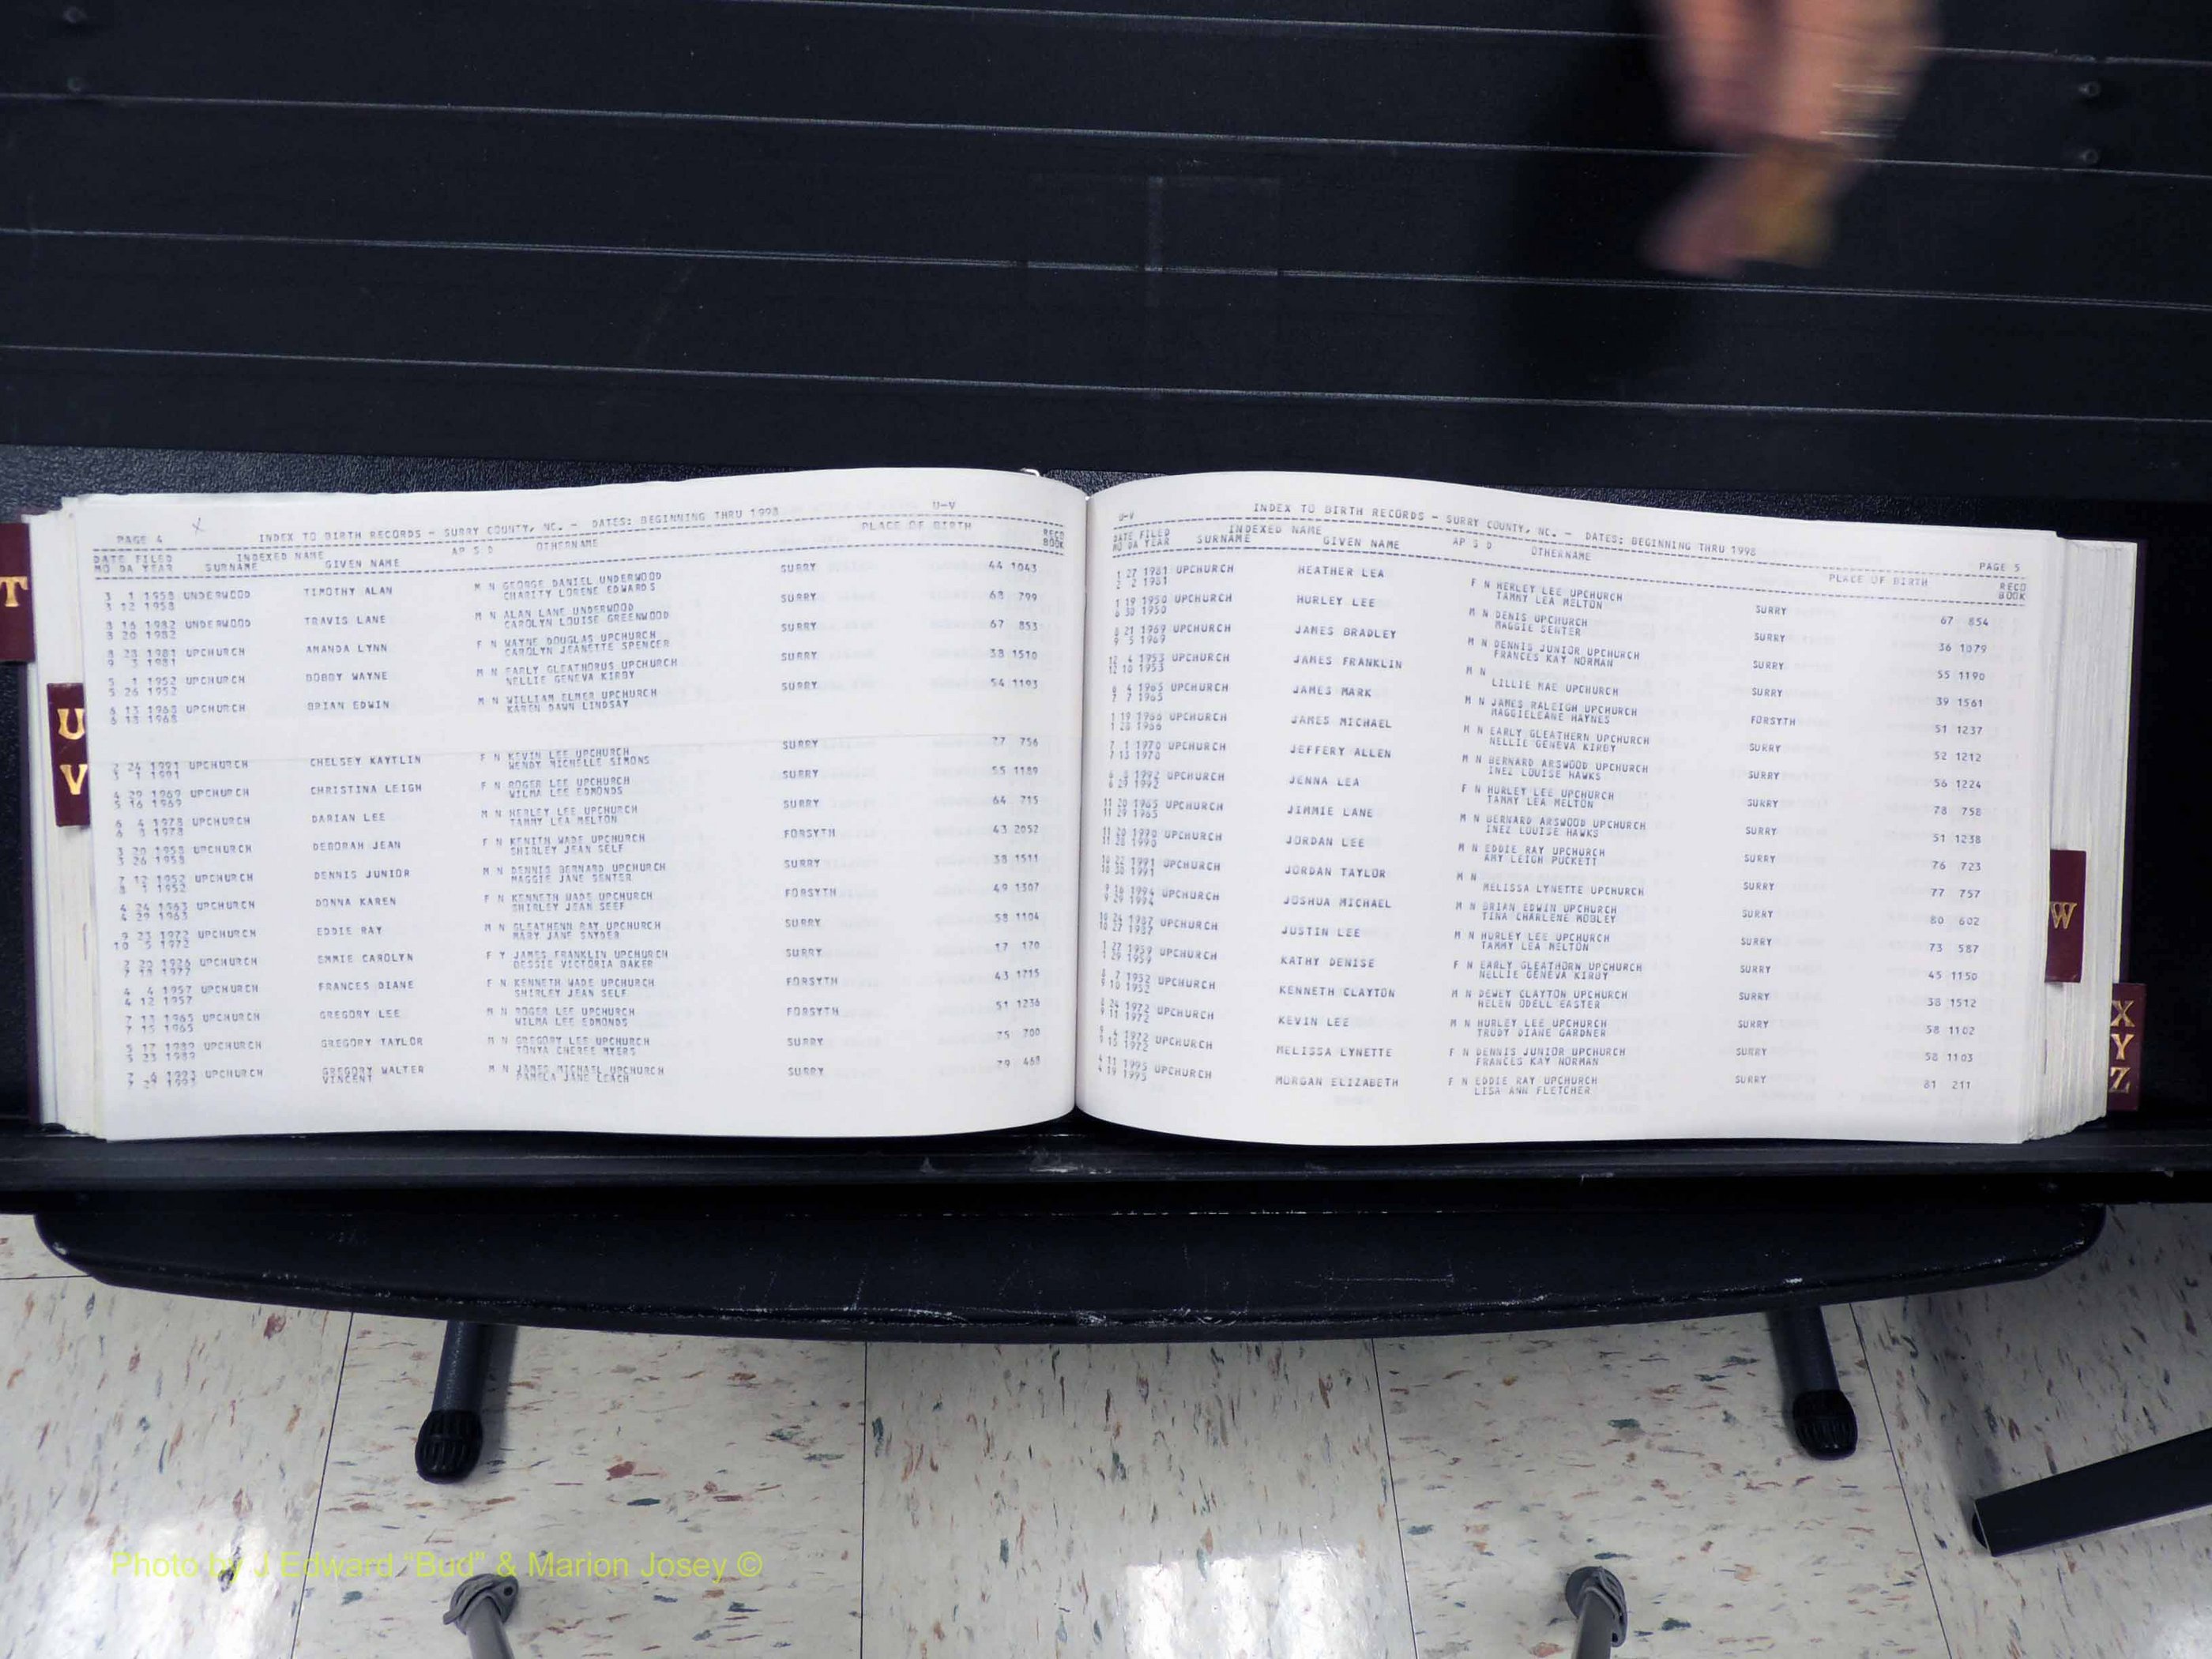 T
U
V
PAGE 4 X INDEX TO BIRTH RECORDS - SURRY COUNTY, NC. - DATES: BEGINNING THRU 1998 U-V
DATE FILED INDEXED NAME AP S D OTHERNAME PLACE OF BIRTH RECD
MO DA YEAR SURNAME GIVEN NAME BOOK
3 1 1958 UNDERWOOD TIMOTHY ALAN M N GEORGE DANIEL UNDERWOOD SURRY 44 1043
3 12 1958 CHARITY LORENE EDWARDS
8 16 1982 UNDERWOOD TRAVIS LANE M N ALAN LANE UNDERWOOD SURRY 68 799
8 20 1982 CAROLYN LOUISE GREENWOOD
8 28 1981 UPCHURCH AMANDA LYNN F N WAYNE DOUGLAS UPCHURCH SURRY 67 853
9 3 1981 CAROLYN JEANETTE SPENCER
5 1 1952 UPCHURCH BOBBY WAYNE M N EARLY GLEATHORUS UPCHURCH SURRY 38 1510
5 26 1952 NELLIE GENEVA KIRBY
6 13 1968 UPCHURCH BRIAN EDWIN M N WILLIAM ELMER UPCHURCH SURRY 54 1193
6 18 1968 KAREN DAWN LINDSAY
2 24 1991 UPCHURCH CHELSEY KAYTLIN F N KEVIN LEE UPCHURCH SURRY 77 756
3 1 1991 WENDY MICHELLE SIMONS
4 29 1969 UPCHURCH CHRISTINA LEIGH F N ROGER LEE UPCHURCH SURRY 55 1189
5 16 1969 WILMA LEE EDMONDS
6 4 1978 UPCHURCH DARIAN LEE M N HERLEY LEE UPCHURCH SURRY 64 715
6 8 1978 TAMMY LEA MELTON
3 20 1958 UPCHURCH DEBORAH JEAN F N KENITH WADE UPCHURCH FORSYTH 43 2052
3 26 1958 SHIRLEY JEAN SELF
7 12 1952 UPCHURCH DENNIS JUNIOR M N DENNIS BERNARD UPCHURCH SURRY 38 1511
8 1 1952 MAGGIE JANE SENTER
4 24 1963 UPCHURCH DONNA KAREN F N KENNETH WADE UPCHURCH FORSYTH 49 1307
4 29 1963 SHIRLEY JEAN SEEF
9 23 1972 UPCHURCH EDDIE RAY M N GLEATHENN RAY UPCHURCH SURRY 58 1104
10 5 1972 MARY JANE SNYDER
2 20 1926 UPCHURCH EMMIE CAROLYN F Y JAMES FRANKLIN UPCHURCH SURRY 17 170
BESSIE VICTORIA BAKER
4 4 1957 UPCHURCH FRANCES DIANE F N KENNETH WADE UPCHURCH FORSYTH 43 1715
4 12 1957 SHIRLEY JEAN SELF
7 13 1965 UPCHURCH GREGORY LEE M N ROGER LEE UPCHURCH FORSYTH 51 1236
7 15 1965 WILMA LEE EDMONDS
5 17 1989 UPCHURCH GREGORY TAYLOR M N GREGORY LEE UPCHURCH SURRY 75 700
5 23 1989 TONYA CHEREE MYERS
7 6 1993 UPCHURCH GREGORY WALTER M N JAMES MICHAEL UPCHURCH SURRY 79 468
7 29 1993 VINCENT PAMELA JANE LEACH
U-V INDEX TO BIRTH RECORDS - SURRY COUNTY, NC. - DATES: BEGINNING THRU 1998 PAGE 5
DATE FILED INDEXED NAME AP S D OTHERNAME PLACE OF BIRTH RECD
MO DA YEAR SURNAME GIVEN NAME BOOK
1 27 1981 UPCHURCH HEATHER LEA F N HERLEY LEE UPCHURCH SURRY 67 854
2 2 1981 TAMMY LEA MELTON
1 19 1950 UPCHURCH HURLEY LEE M N DENIS UPCHURCH SURRY 36 1079
6 30 1950 MAGGIE SENTER
8 21 1969 UPCHURCH JAMES BRADLEY M N DENNIS JUNIOR UPCHURCH SURRY 55 1190
9 5 1969 FRANCES KAY NORMAN
12 4 1953 UPCHURCH JAMES FRANKLIN M N SURRY 39 1561
12 10 1953 LILLIE MAE UPCHURCH
6 4 1965 UPCHURCH JAMES MARK M N JAMES RALEIGH UPCHURCH FORSYTH 51 1237
7 7 1965 MAGGIELEANE HAYNES
1 19 1966 UPCHURCH JAMES MICHAEL M N EARLY GLEATHERN UPCHURCH SURRY 52 1212
1 28 1966 NELLIE GENEVA KIRBY
7 1 1970 UPCHURCH JEFFERY ALLEN M N BERNARD ARSWOOD UPCHURCH SURRY 56 1224
7 13 1970 INEZ LOUISE HAWKS
6 8 1992 UPCHURCH JENNA LEA F N HURLEY LEE UPCHURCH SURRY 78 758
6 29 1992 TAMMY LEA MELTON
11 20 1965 UPCHURCH JIMMIE LANE M N BERNARD ARSWOOD UPCHURCH SURRY 51 1238
11 29 1965 INEZ LOUISE HAWKS
11 20 1990 UPCHURCH JORDAN LEE M N EDDIE RAY UPCHURCH SURRY 76 723
11 28 1990 AMY LEIGH PUCKETT
10 22 1991 UPCHURCH JORDAN TAYLOR M N SURRY 77 757
10 30 1991 MELISSA LYNETTE UPCHURCH
9 16 1994 UPCHURCH JOSHUA MICHAEL M N BRIAN EDWIN UPCHURCH SURRY 80 602
9 29 1994 TINA CHARLENE MOBLEY
10 24 1987 UPCHURCH JUSTIN LEE M N HURLEY LEE UPCHURCH SURRY 73 587
10 27 1987 TAMMY LEA MELTON
1 27 1959 UPCHURCH KATHY DENISE F N EARLY GLEATHORN UPCHURCH SURRY 45 1150
1 29 1959 NELLIE GENEVA KIRBY
8 7 1952 UPCHURCH KENNETH CLAYTON M N DEWEY CLAYTON UPCHURCH SURRY 38 1512
9 10 1952 HELEN ODELL EASTER
8 24 1972 UPCHURCH KEVIN LEE M N HURLEY LEE UPCHURCH SURRY 58 1102
9 11 1972 TRUDY DIANE GARDNER
9 4 1972 UPCHURCH MELISSA LYNETTE F N DENNIS JUNIOR UPCHURCH SURRY 58 1103
9 15 1972 FRANCES KAY NORMAN
4 11 1995 UPCHURCH MORGAN ELIZABETH F N EDDIE RAY UPCHURCH SURRY 81 211
4 19 1995 LISA ANN FLETCHER
W
X
Y
Z
Photo by J Edward “Bud” & Marion Josey ©